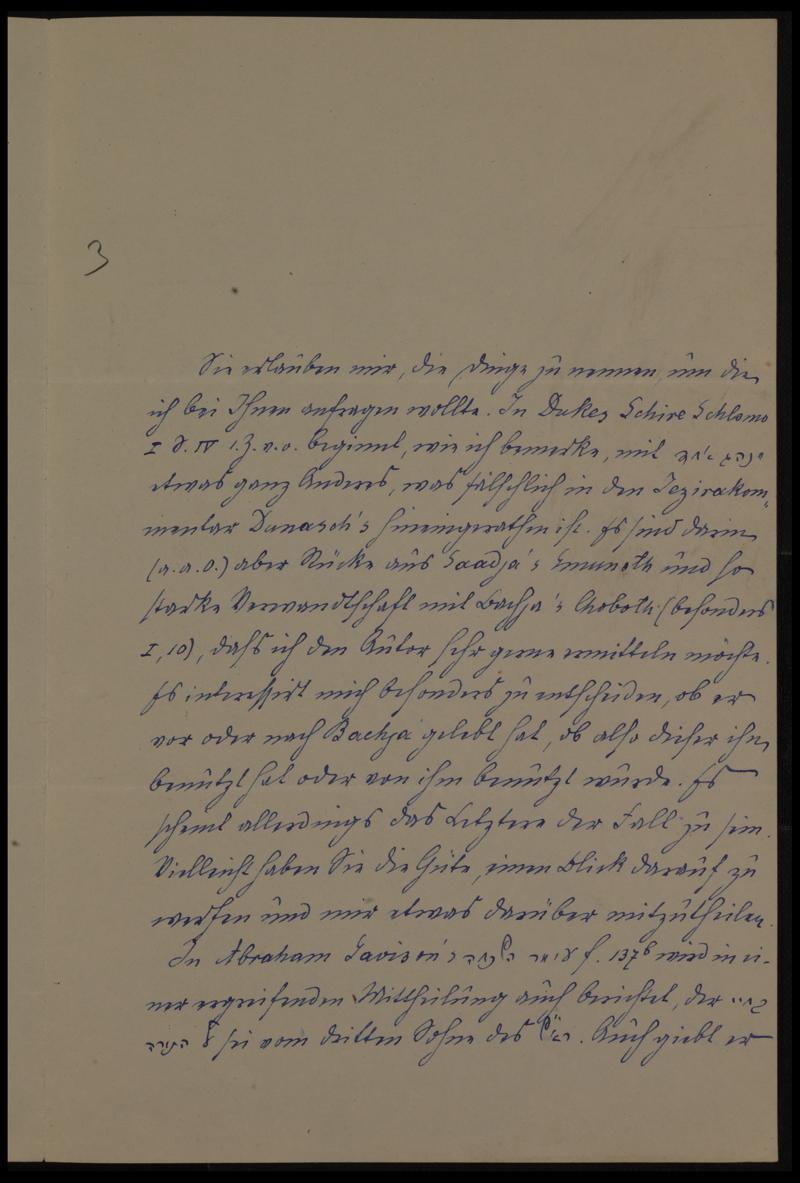 3
Sie erlauben mir, die Dinge zu nennen, um die
ich bei Ihnen anfragen wollte. In Dukes Schire Schlomo
I S. IV 1. Z. v. o. beginnt, wie ich bemerke, mit
etwas ganz Anderes, was fälschlich in den Jezirakom-
mentar Dunasch's hineingerathen ist. Es sind darin
(a. a. O.) aber Stücke aus Saadja's Emunoth und so
starke Verwandtschaft mit Bachja's Choboth (besonders
I, 10), daß ich den Autor sehr gerne ermitteln möchte.
Es interessirt mich besonders zu entscheiden, ob er
vor oder nach Bachja gelebt hat, ob also dieser ihn
benützt hat oder von ihm benützt wurde. Es
scheint allerdings das Letztere der Fall zu sein.
Vielleicht haben Sie die Güte, einen Blick darauf zu
werfen und mir etwas darüber mitzutheilen.
In Abraham Gavison's עומר השכחה f. 137b wird in ei-
ner ergreifenden Mittheilung auch berichtet, der
sei vom dritten Sohne des הרא"ש. Auch giebt er